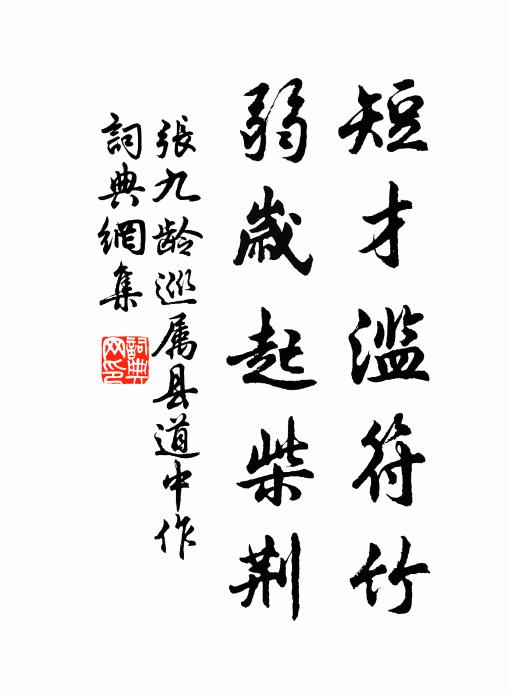 短才濫符竹
弱歲起柴荆
張九龄巡属县道中作
詞典網集
詞典網印